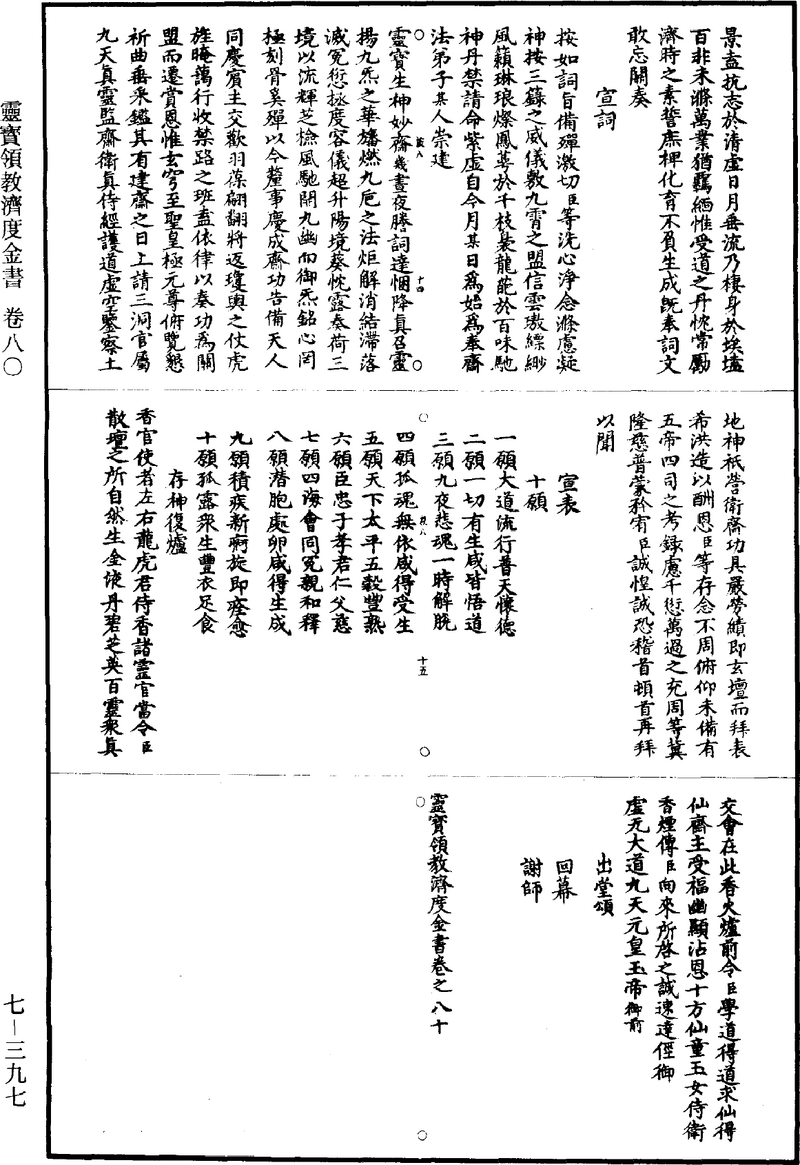 靈寶領教濟度金書　卷八〇
七－三九七
景盍抗志於清虛日月垂流乃棲身於埃壒
百非未滌萬業猶羈緬惟受道之丹忱常勵
濟時之素誓庶裨化育不負生成既奉詞文
敢忘關奏
宣詞
按如詞旨備殫激切臣等洗心淨念滌慮凝
神按三籙之威儀敷九霄之盟信雲璈縹緲
風籟琳琅燦鳳 於千枝裊龍 於百味馳
神丹禁請命紫虛自今月某日為始為奉齋
法弟子某人崇建
靈寶生神妙齋幾晝夜謄詞達悃降真召靈
揚九炁之華旛燃九巵之法炬解消結滯落
滅冤愆拯度容儀超升陽境葵忱露奏荷三
境以流輝芝檢風馳開九幽而御炁銘心罔
極刻骨奚殫以今釐事慶成齋功告備天人
同慶賓主交歡羽葆翩翻將返瓊輿之仗虎
旌晻藹行收禁路之班盍依律以奏功為關
盟而遷賞恩惟玄穹至聖皇極元尊俯覽懇
祈曲垂采鑑其有建齋之日上請三洞官屬
九天真靈監齋衛真侍經護道虛空鑒察土
菽八
十四
地神祇營衛齋功具嚴勞績即玄壇而拜表
希洪造以酬恩臣等存念不周俯仰未備有
五帝四司之考錄慮千愆萬過之充周等冀
隆慈普蒙矜宥臣誠惶誠恐稽首頓首再拜
以聞
宣表
十願
一願大道流行普天懷德
二願一切有生咸皆悟道
三願九夜悲魂一時解脫
四願孤魂無依咸得受生
五願天下太平五穀豐熟
六願臣忠子孝君仁父慈
七願四海會同冤親和釋
八願潛胞處卵咸得生成
九願積疾新痾旋即痊愈
十願孤露眾生豐衣足食
存神復爐
香官使者左右龍虎君侍香諸靈官當令臣
散壇之所自然生金液丹碧芝英百靈眾真
菽八
十五
交會在此香火爐前令臣學道得道求仙得
仙齋主受福幽顯沾恩十方仙童玉女侍衛
香煙傳臣向來所啓之誠速達徑御
虛无大道九天元皇玉帝御前
出堂頌
回幕
謝師
靈寶領教濟度金書卷之八十